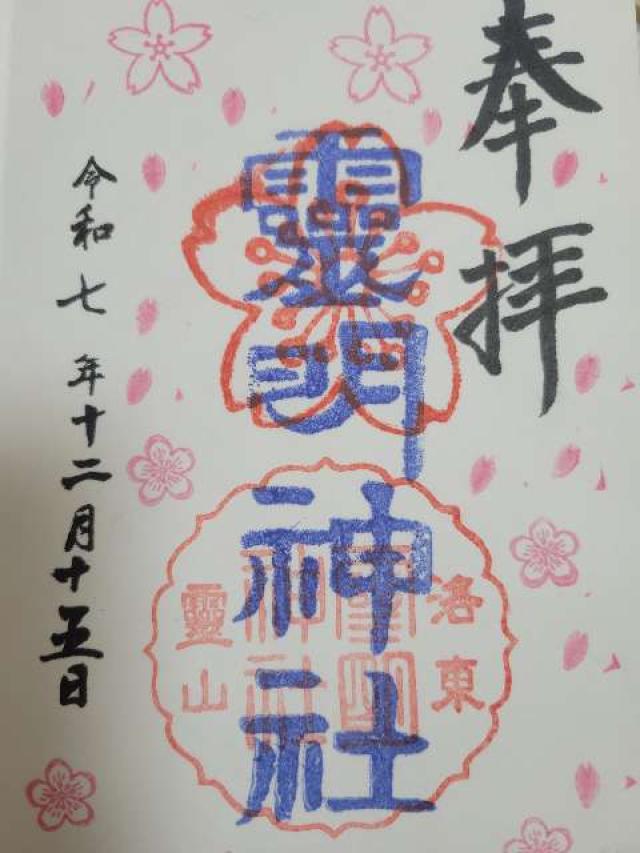 奉拝
靈明神社
洛東
靈明
神社
靈山
令和七年十二月十五日